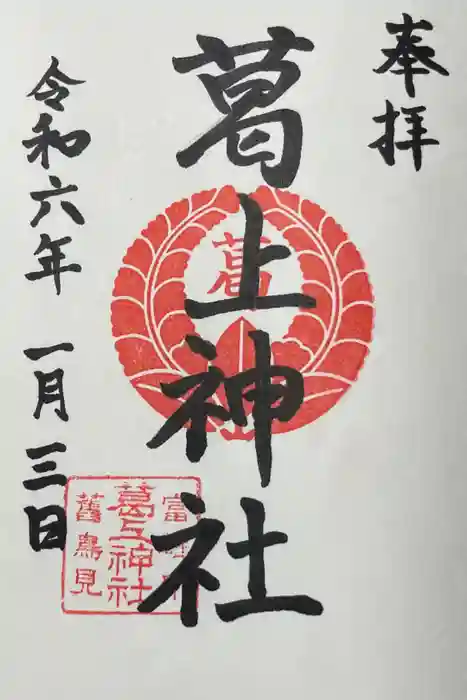 奉拝
葛上神社
葛
令和六年 一月三日
葛上神社
舊鳥見